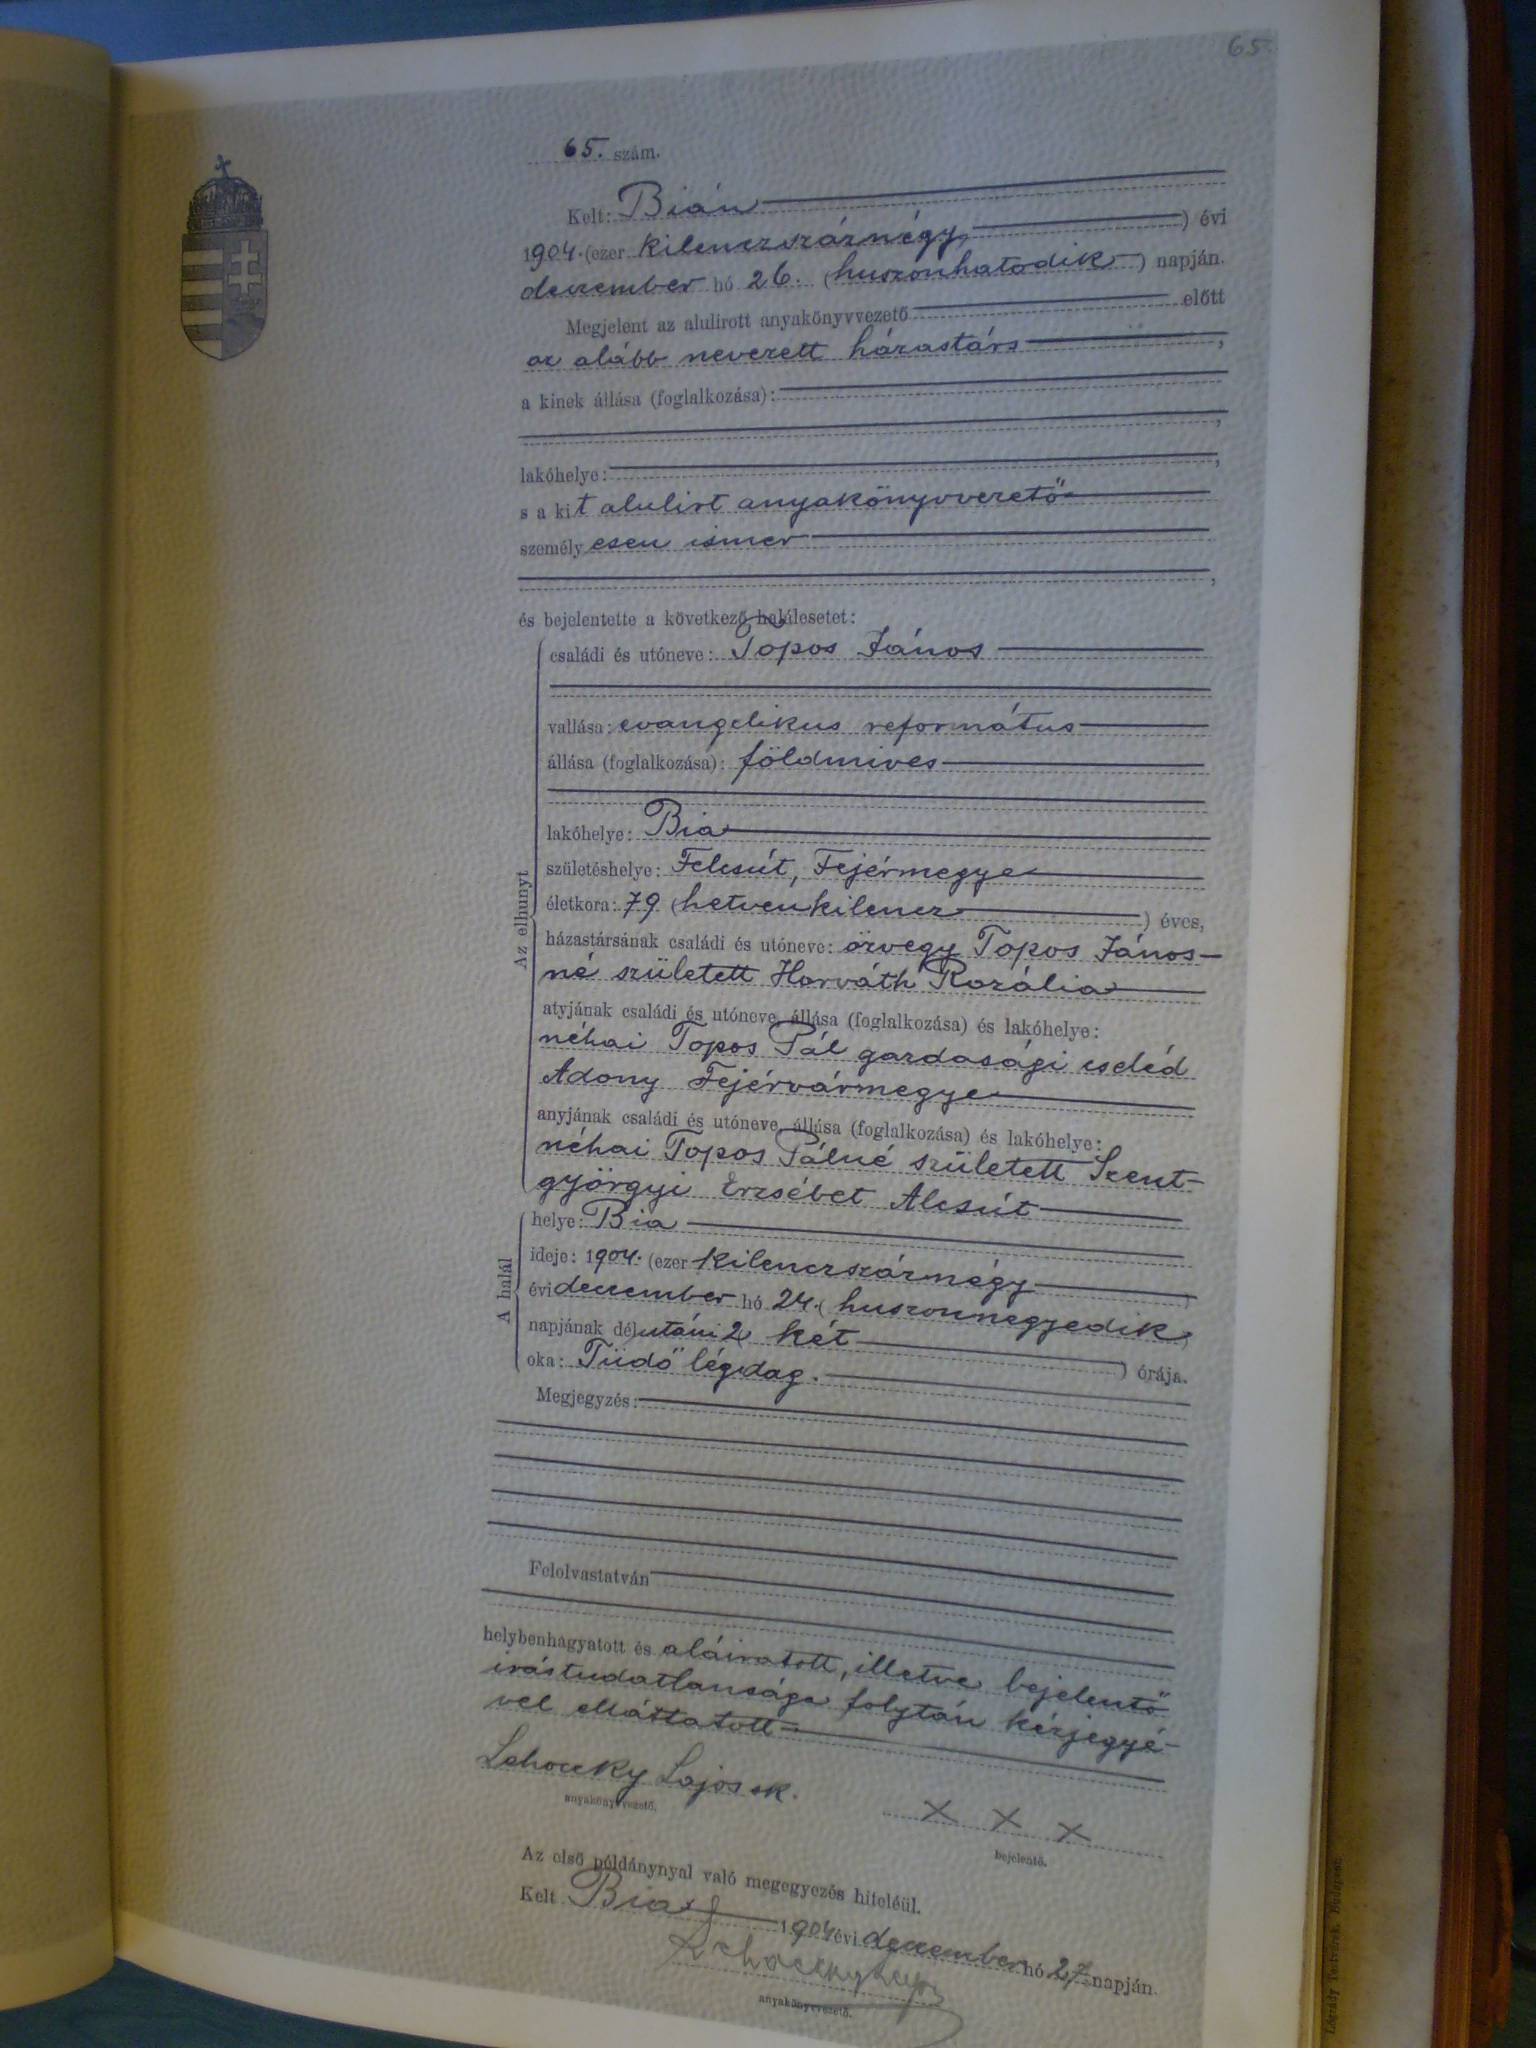 65.
65. szám.
Kelt: Bián
1904. (ezer kilenczszáznégy) évi
deczember hó 26. (huszonhatodik) napján.
Megjelent az alulirott anyakönyvvezető előtt
az alább nevezett házastárs,
a kinek állása (foglalkozása):
,
lakóhelye: ,
s a kit alulirt anyakönyvvezető
személyesen ismer
,
és bejelentette a következő halálesetet:
Az elhunyt
családi és utóneve: Topos János
vallása: evangelikus református
állása (foglalkozása): földmives
lakóhelye: Bia
születéshelye: Felcsút, Fejérmegye
életkora: 79 (hetvenkilencz) éves,
házastársának családi és utóneve: özvegy Topos János-
né született Horváth Rozália
atyjának családi és utóneve, állása (foglalkozása) és lakóhelye:
néhai Topos Pál gazdasági cseléd
Adony Fejérvármegye
anyjának családi és utóneve, állása (foglalkozása) és lakóhelye:
néhai Topos Pálné született Szent-
györgyi Erzsébet Alcsút
A halál
helye: Bia
ideje: 1904. (ezer kilenczszáznégy
évi deczember hó 24. (huszonnegyedik)
napjának délutáni 2 (két) órája.
oka: Tüdő légdag.
Megjegyzés:
Felolvastatván
helybenhagyatott és aláiratott, illetve bejelentő
irástudatlansága folytán kézjegyé-
vel elláttatott
Lehoczky Lajos sk.
anyakönyvvezető.
X X X
bejelentő.
Az első példánynyal való megegyezés hiteléül.
Kelt Bia 1904 évi deczember hó 27 napján.
Lehoczky Lajos
anyakönyvvezető.
Légrády Testvérek, Budapest.